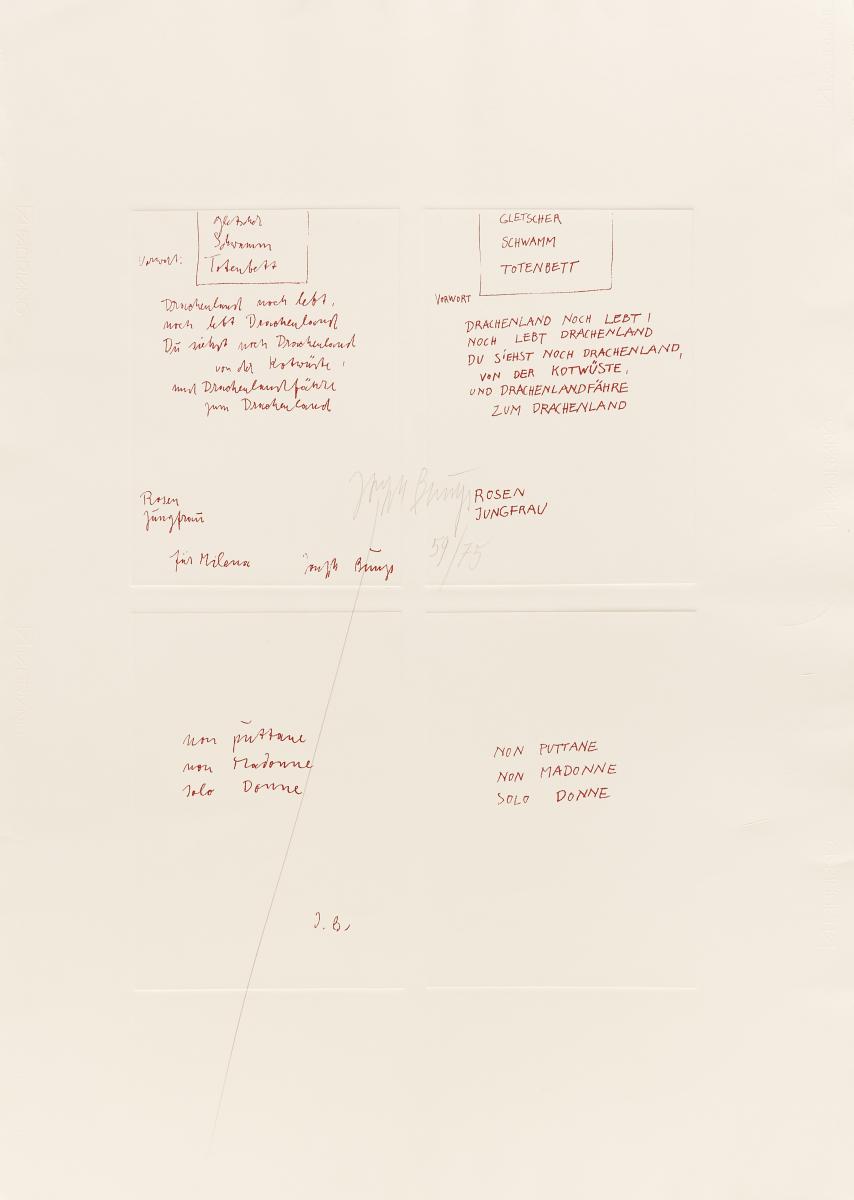 gletscher
Schwamm
Totenbett
Vorwort:
Drachenland noch lebt,
noch lebt Drachenland
Du siehst noch Drachenland
von der Kotwüste,
und Drachenlandfähre
zum Drachenland
Rosen
Jungfrau
für Milena
Joseph Beuys
GLETSCHER
SCHWAMM
TOTENBETT
VORWORT
DRACHENLAND NOCH LEBT!
NOCH LEBT DRACHENLAND
DU SIEHST NOCH DRACHENLAND,
VON DER KOTWÜSTE,
UND DRACHENLANDFÄHRE
ZUM DRACHENLAND
ROSEN
JUNGFRAU
Joseph Beuys
59/75
non puttane
non Madonne
solo Donne
J. B.
NON PUTTANE
NON MADONNE
SOLO DONNE